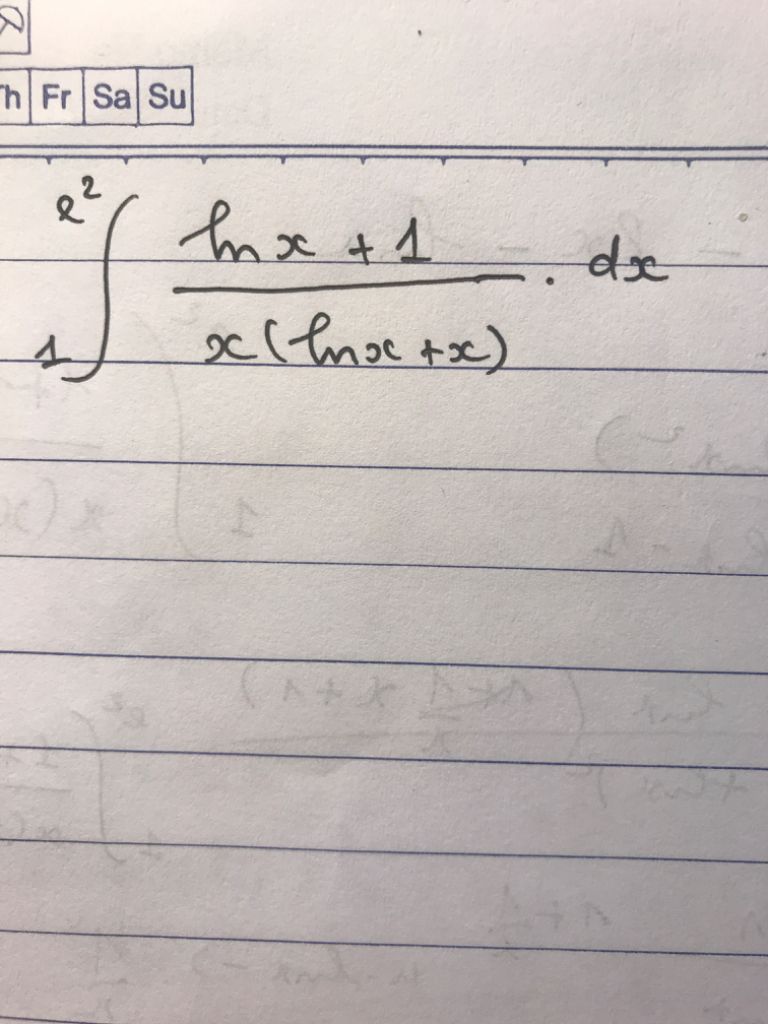 Th Fr Sa Su
∫₁^{e²} (ln x + 1) / (x(ln x + x)) . dx